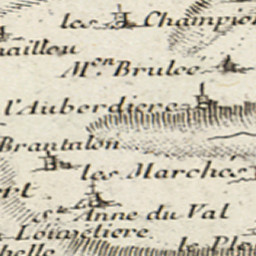 les Champion
aillou
M.en Brulée
l'Auberdiere
Brantalon
les Marchés
ert
Ste Anne du Val
Loumetiere
helle
le Ple